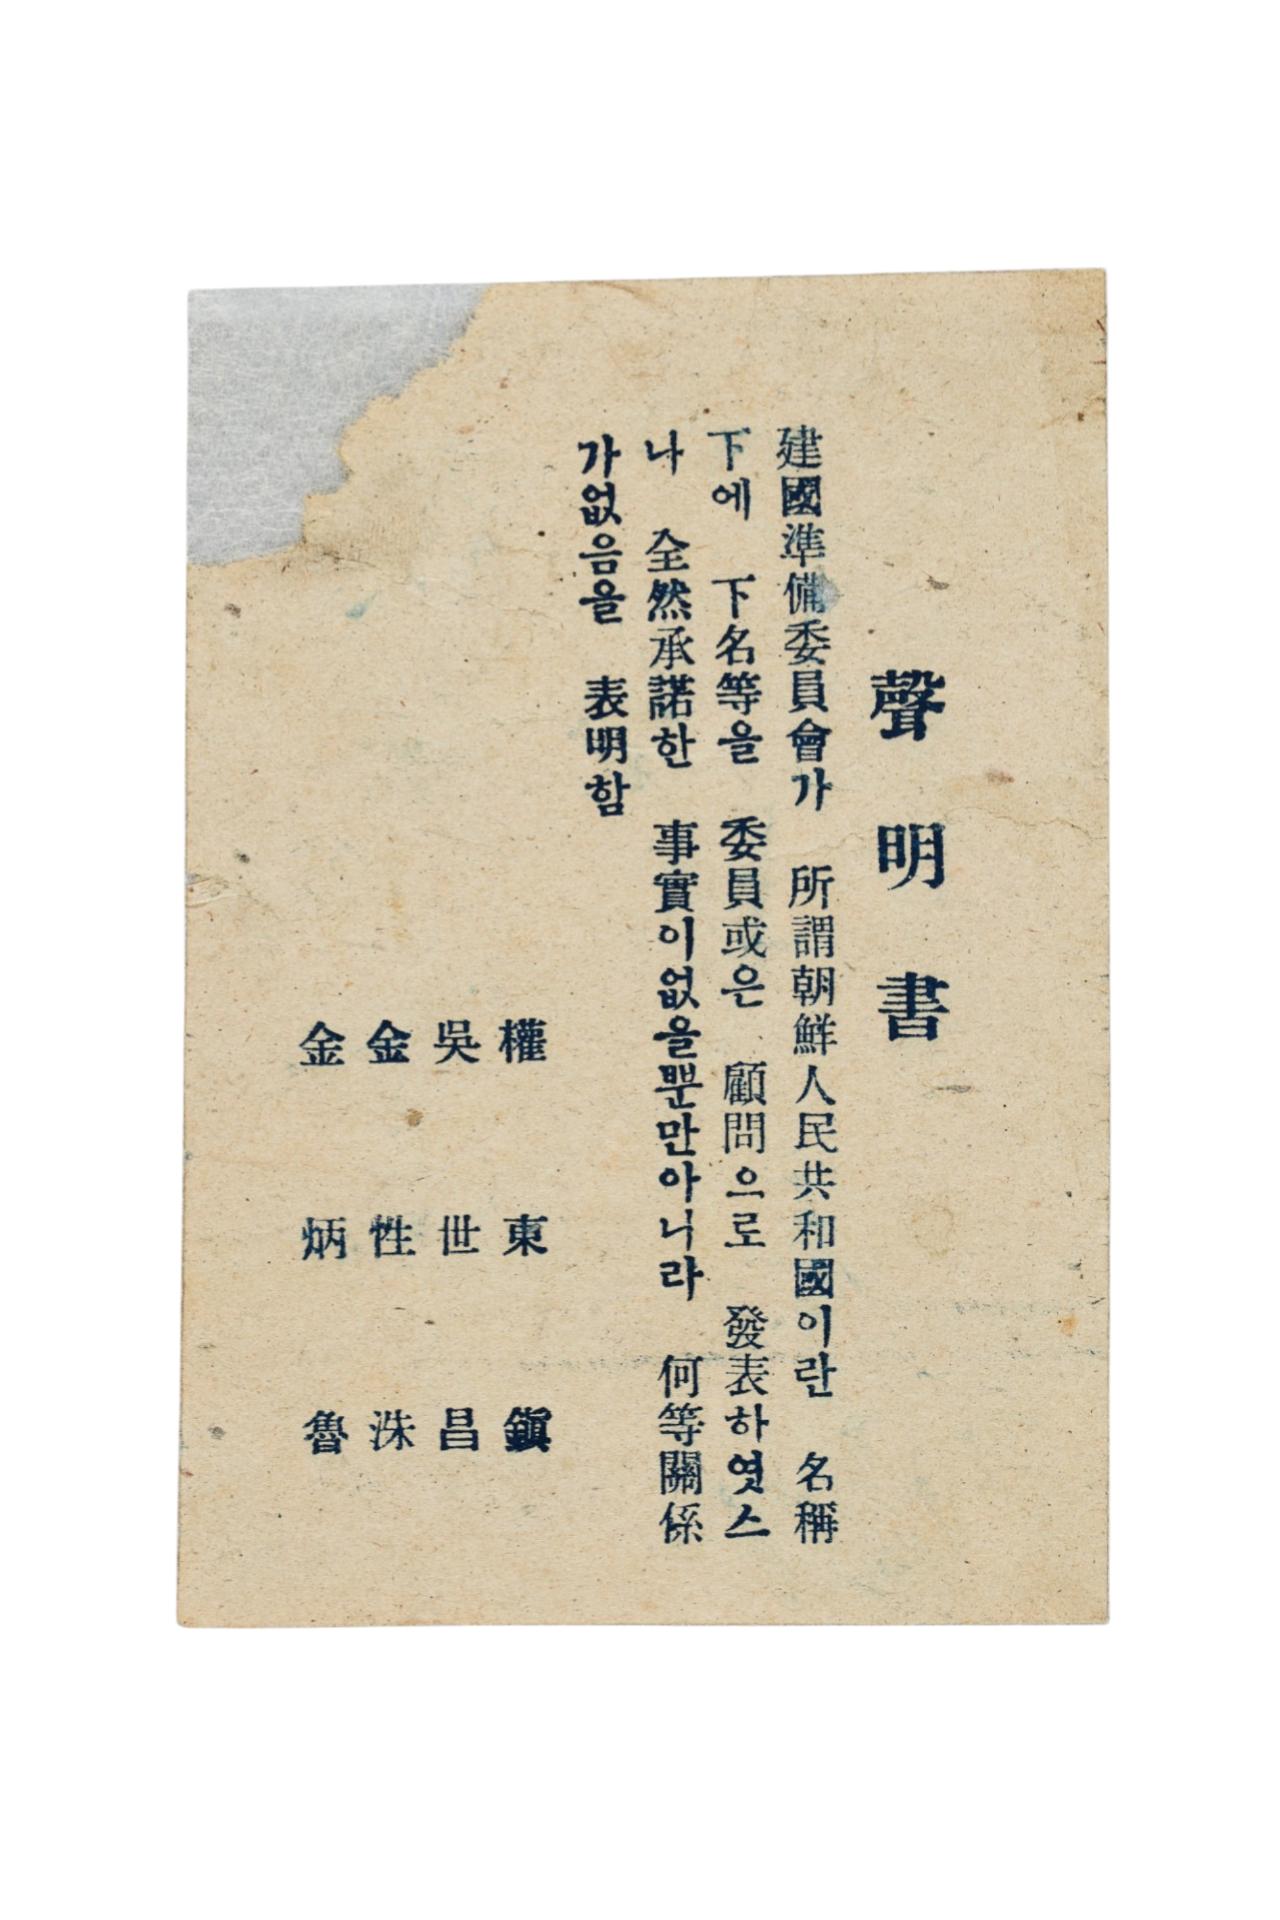 聲明書
建國準備委員會가 所謂朝鮮人民共和國이란 名稱
下에 下名等을 委員或은 顧問으로 發表하엿스
나 全然承諾한 事實이없을뿐만아니라 何等關係
가없음을 表明함
權東鎭
吳世昌
金性洙
金炳魯